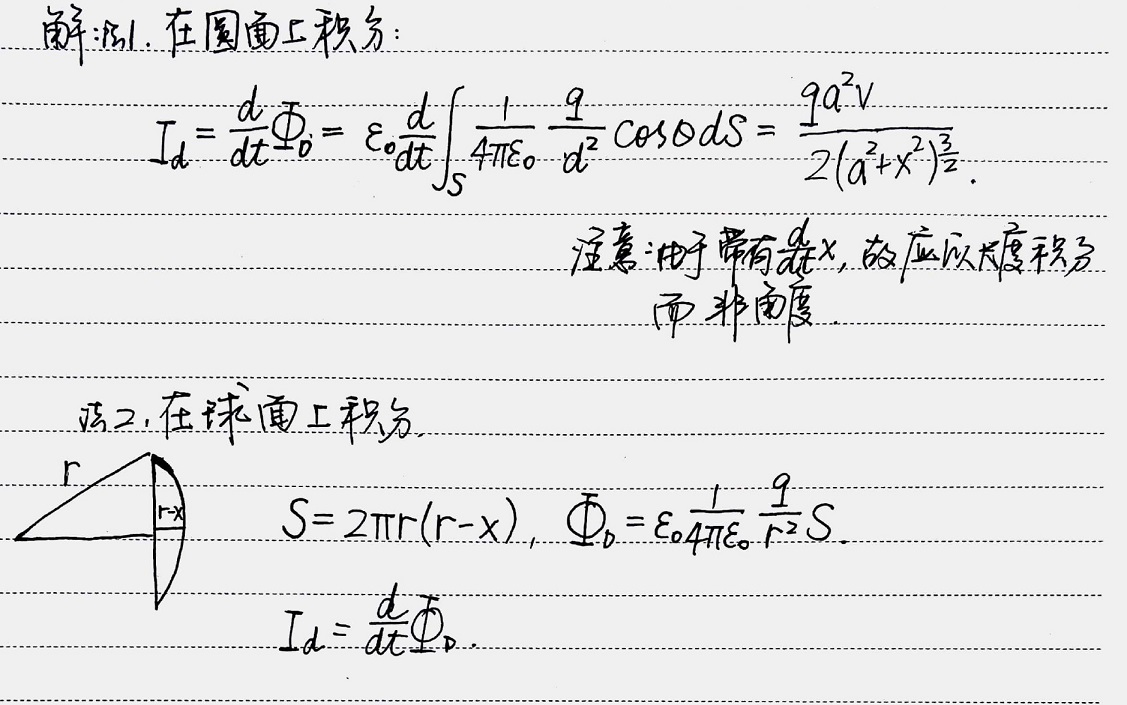 解:法1. 在圆面上积分:
I_d = d/dt Φ_D = ε₀ d/dt ∫_S 1/(4πε₀) q/d² cosθ dS = qa²v / 2(a²+x²)^(3/2).
注意:由于带有 d/dt x, 故应以长度积分
而非角度.
法2. 在球面上积分.
r
r-x
S=2πr(r-x), Φ_D = ε₀ 1/(4πε₀) q/r² S.
I_d = d/dt Φ_D.